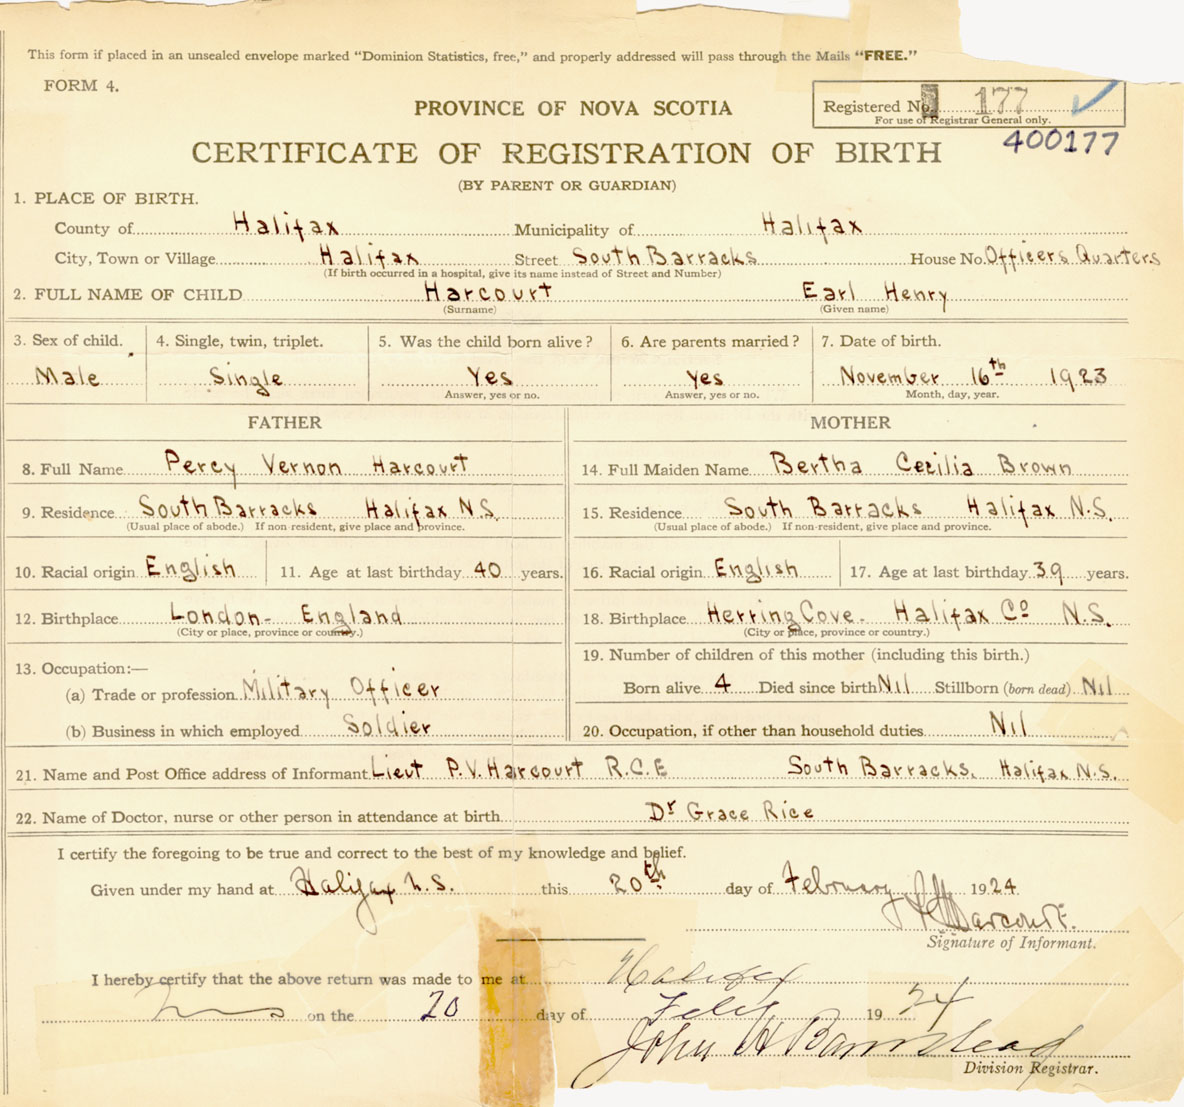 This form if placed in an unsealed envelope marked “Dominion Statistics, free,” and properly addressed will pass through the Mails “FREE.”
FORM 4.
PROVINCE OF NOVA SCOTIA
Registered No. 177
For use of Registrar General only.
400177
CERTIFICATE OF REGISTRATION OF BIRTH
(BY PARENT OR GUARDIAN)
1. PLACE OF BIRTH.
County of Halifax Municipality of Halifax
City, Town or Village Halifax Street South Barracks House No. Officers Quarters
(If birth occurred in a hospital, give its name instead of Street and Number)
2. FULL NAME OF CHILD Harcourt Earl Henry
(Surname) (Given name)
3. Sex of child. 4. Single, twin, triplet. 5. Was the child born alive? 6. Are parents married? 7. Date of birth.
Male Single Yes Yes November 16th 1923
Answer, yes or no. Answer, yes or no. Month, day, year.
FATHER MOTHER
8. Full Name Percy Vernon Harcourt 14. Full Maiden Name Bertha Cecilia Brown
9. Residence South Barracks Halifax N.S. 15. Residence South Barracks Halifax N.S.
(Usual place of abode.) If non-resident, give place and province. (Usual place of abode.) If non-resident, give place and province.
10. Racial origin English 11. Age at last birthday 40 years. 16. Racial origin English 17. Age at last birthday 39 years.
12. Birthplace London - England 18. Birthplace Herring Cove. Halifax Co N.S.
(City or place, province or country.) (City or place, province or country.)
13. Occupation:— 19. Number of children of this mother (including this birth.)
(a) Trade or profession Military Officer Born alive 4 Died since birth Nil Stillborn (born dead) Nil
(b) Business in which employed Soldier 20. Occupation, if other than household duties Nil
21. Name and Post Office address of Informant Lieut P.V. Harcourt R.C.E South Barracks, Halifax N.S.
22. Name of Doctor, nurse or other person in attendance at birth Dr Grace Rice
I certify the foregoing to be true and correct to the best of my knowledge and belief.
Given under my hand at Halifax N.S. this 20th day of February 1924
Harcourt.
Signature of Informant.
I hereby certify that the above return was made to me at Halifax
on the 20 day of Feby 1924
John H Barnstead
Division Registrar.